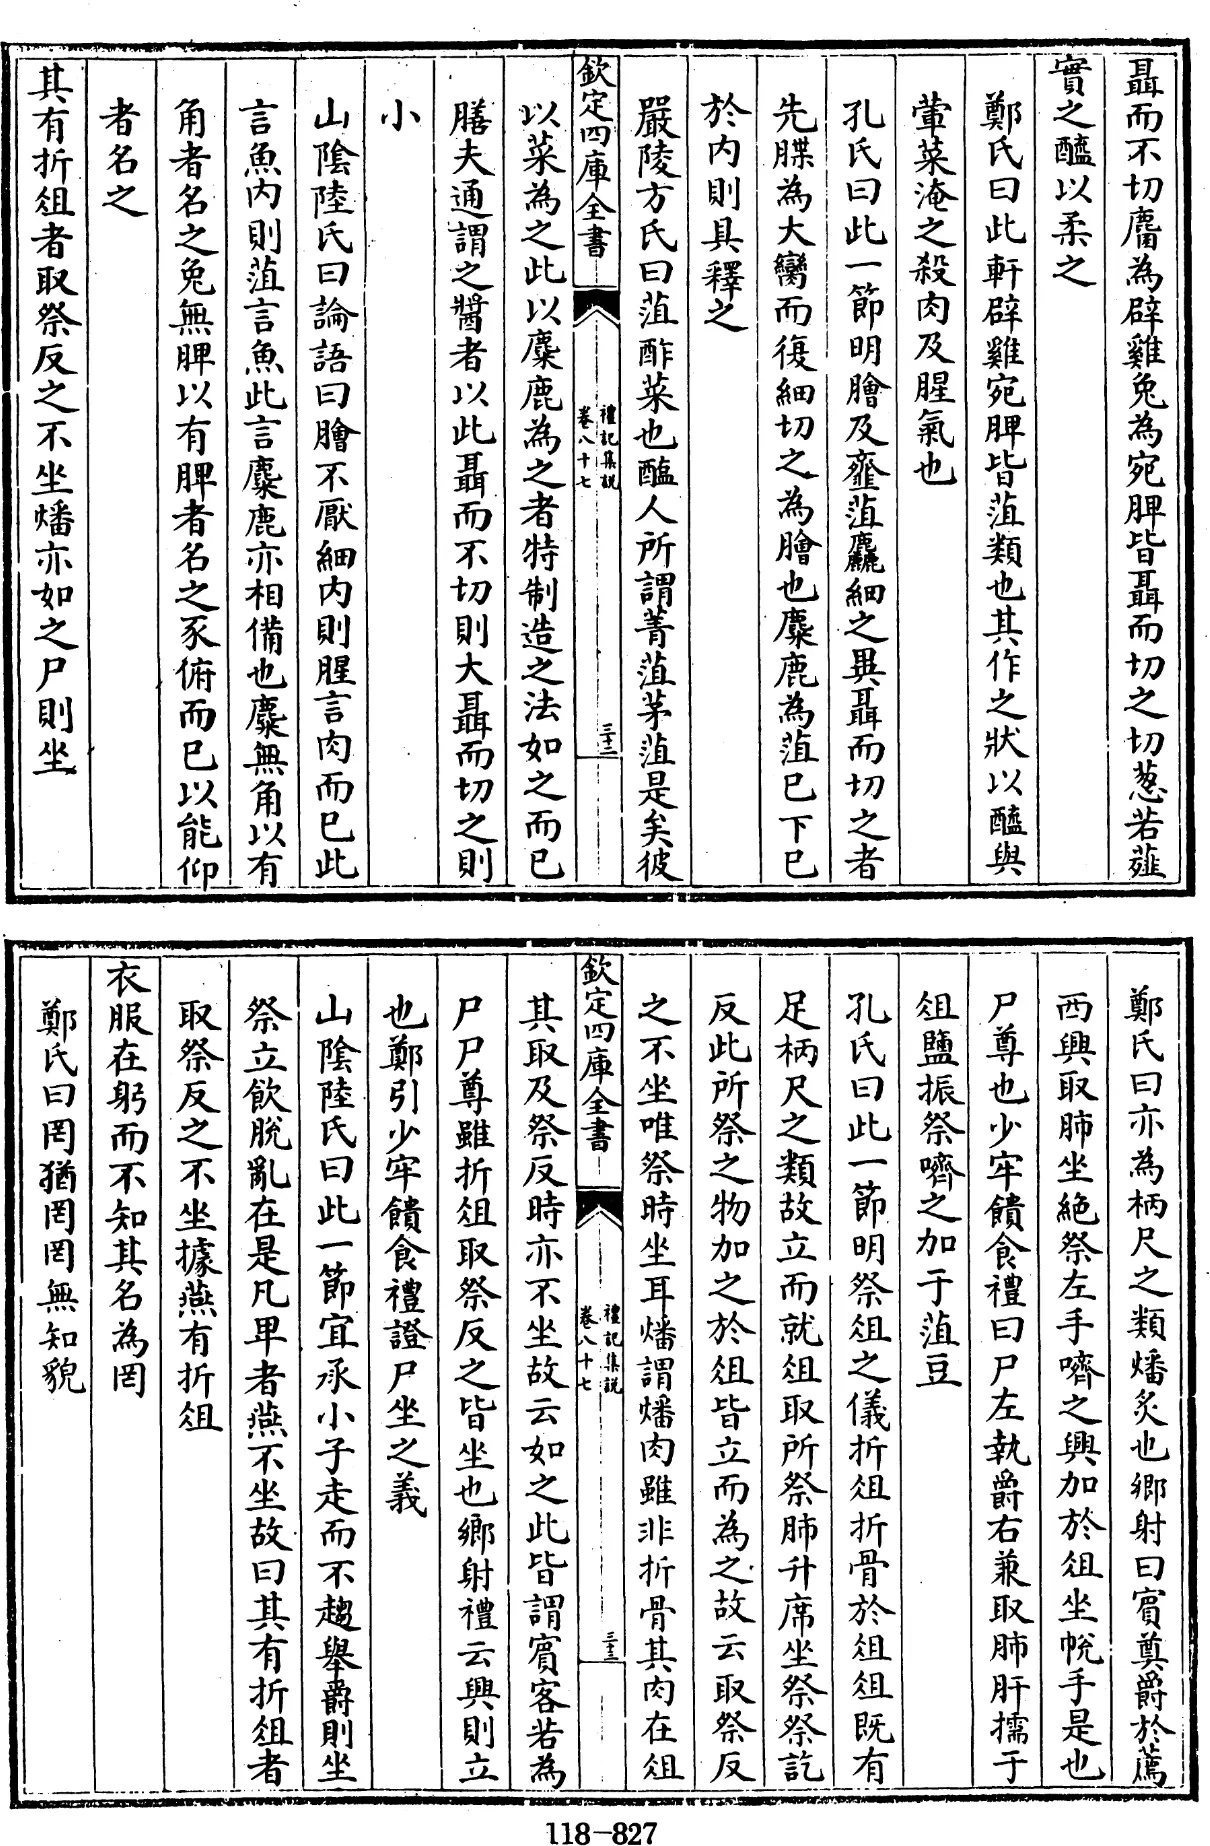 聶而不切麕為辟雞兔為宛脾皆聶而切之切葱若薤
實之醯以柔之
鄭氏曰此軒辟雞宛脾皆菹類也其作之狀以醯與
葷菜淹之殺肉及腥氣也
孔氏曰此一節明膾及虀菹麤細之異聶而切之者
先牒為大臠而復細切之為膾也麋鹿為菹已下已
於内則具釋之
嚴陵方氏曰菹酢菜也醢人所謂菁菹茅菹是矣彼
欽定四庫全書
禮記集說
卷八十七
三十二
以菜為之此以麋鹿為之者特制造之法如之而已
膳夫通謂之醬者以此聶而不切則大聶而切之則
小
山陰陸氏曰論語曰膾不厭細内則腥言肉而已此
言魚内則菹言魚此言麋鹿亦相備也麋無角以有
角者名之兔無脾以有脾者名之豕俯而已以能仰
者名之
其有折俎者取祭反之不坐燔亦如之尸則坐
鄭氏曰亦為柄尺之類燔炙也鄉射曰賓奠爵於薦
西興取肺坐絶祭左手嚌之興加於俎坐帨手是也
尸尊也少牢饋食禮曰尸左執爵右兼取肺肝擩于
俎鹽振祭嚌之加于菹豆
孔氏曰此一節明祭俎之儀折俎折骨於俎俎既有
足柄尺之類故立而就俎取所祭肺升席坐祭祭訖
反此所祭之物加之於俎皆立而為之故云取祭反
之不坐唯祭時坐耳燔謂燔肉雖非折骨其肉在俎
欽定四庫全書
禮記集說
卷八十七
三十三
其取及祭反時亦不坐故云如之此皆謂賓客若為
尸尸尊雖折俎取祭反之皆坐也鄉射禮云興則立
也鄭引少牢饋食禮證尸坐之義
山陰陸氏曰此一節宜承小子走而不趨舉爵則坐
祭立飲脱亂在是凡卑者燕不坐故曰其有折俎者
取祭反之不坐據燕有折俎
衣服在躬而不知其名為罔
鄭氏曰罔猶罔罔無知貌
118-827